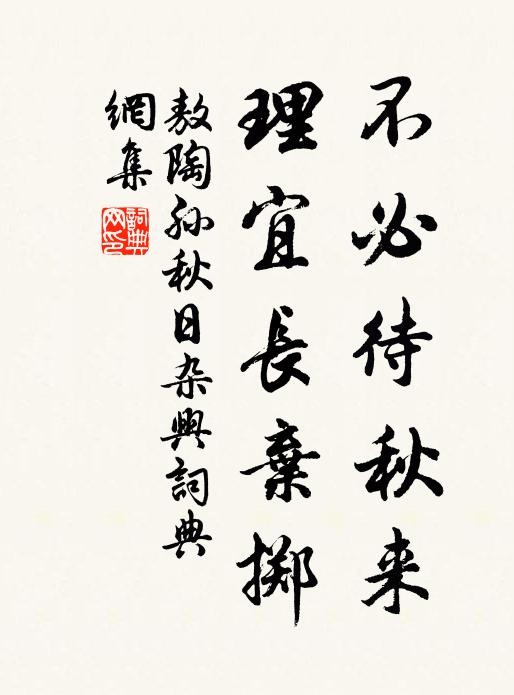 不必待秋来
理宜長棄擲
敖陶孫秋日杂興詞典
網集
詞典網印